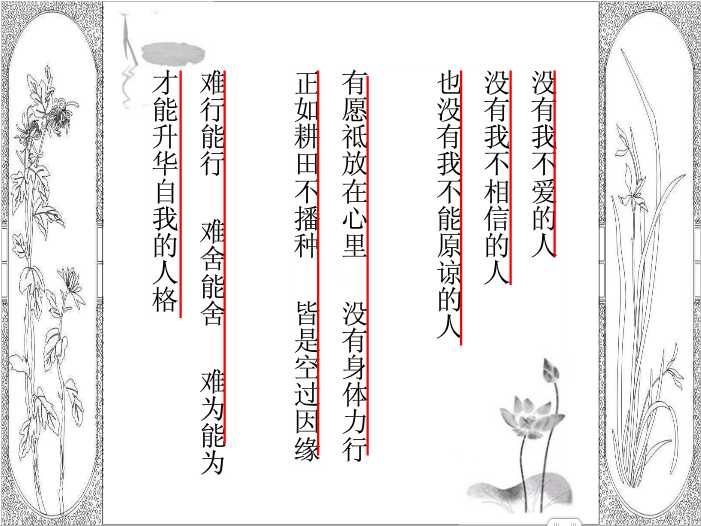 没有我不爱的人
没有我不相信的人
也没有我不能原谅的人
有愿祗放在心里 没有身体力行
正如耕田不播种 皆是空过因缘
难行能行 难舍能舍 难为能为
才能升华自我的人格